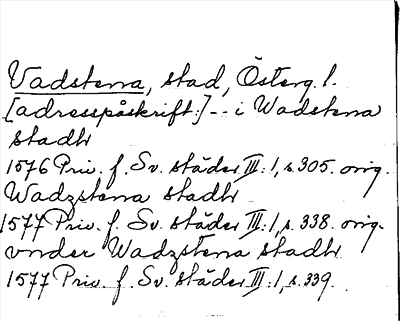 Vadstena, stad, Österg. l.
[adresspåskrift:] -- i Wadstena
stadh
1576 Priv. f. Sv. städer III:1, s. 305. orig.
Wadzstena stadh
1577 Priv. f. Sv. städer III:1, s. 338. orig.
vnder Wadzstena stadh
1577 Priv. f. Sv. städer III:1, s. 339.